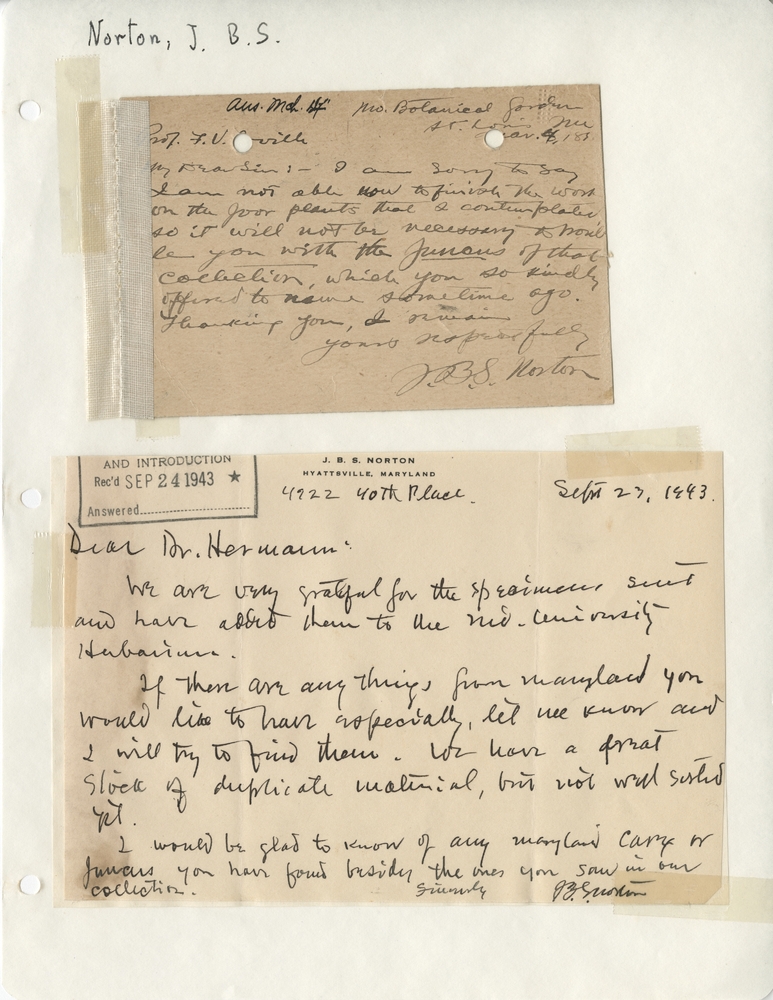 Norton, J. B. S.
Ans. Mch. 14
Mo. Botanical Garden
St. Louis Mo
Prof. F. V. Coville
Mar. 9, 189
My Dear Sir: - I am sorry to say
I am not able now to finish the work
on the poor plants that I contemplated
so it will not be necessary to trou
le you with the Juncus of that
collection, which you so kindly
offered to name sometime ago.
Thanking you, I remain
yours respectfully
J.B.S. Norton
AND INTRODUCTION
Rec'd SEP 24 1943 ★
Answered
J. B. S. NORTON
HYATTSVILLE, MARYLAND
4922 40th Place.
Sept 23, 1943.
Dear Dr. Hermann:
We are very grateful for the specimens sent
and have added them to the Md. University
Herbarium.
If there are any things from Maryland you
would like to have especially, let me know and
I will try to find them. We have a great
stock of duplicate material, but not well sorted
yet.
I would be glad to know of any Maryland Carex or
Juncus you have found besides the ones you saw in our
collection.
Sincerely
J.B.S. Norton